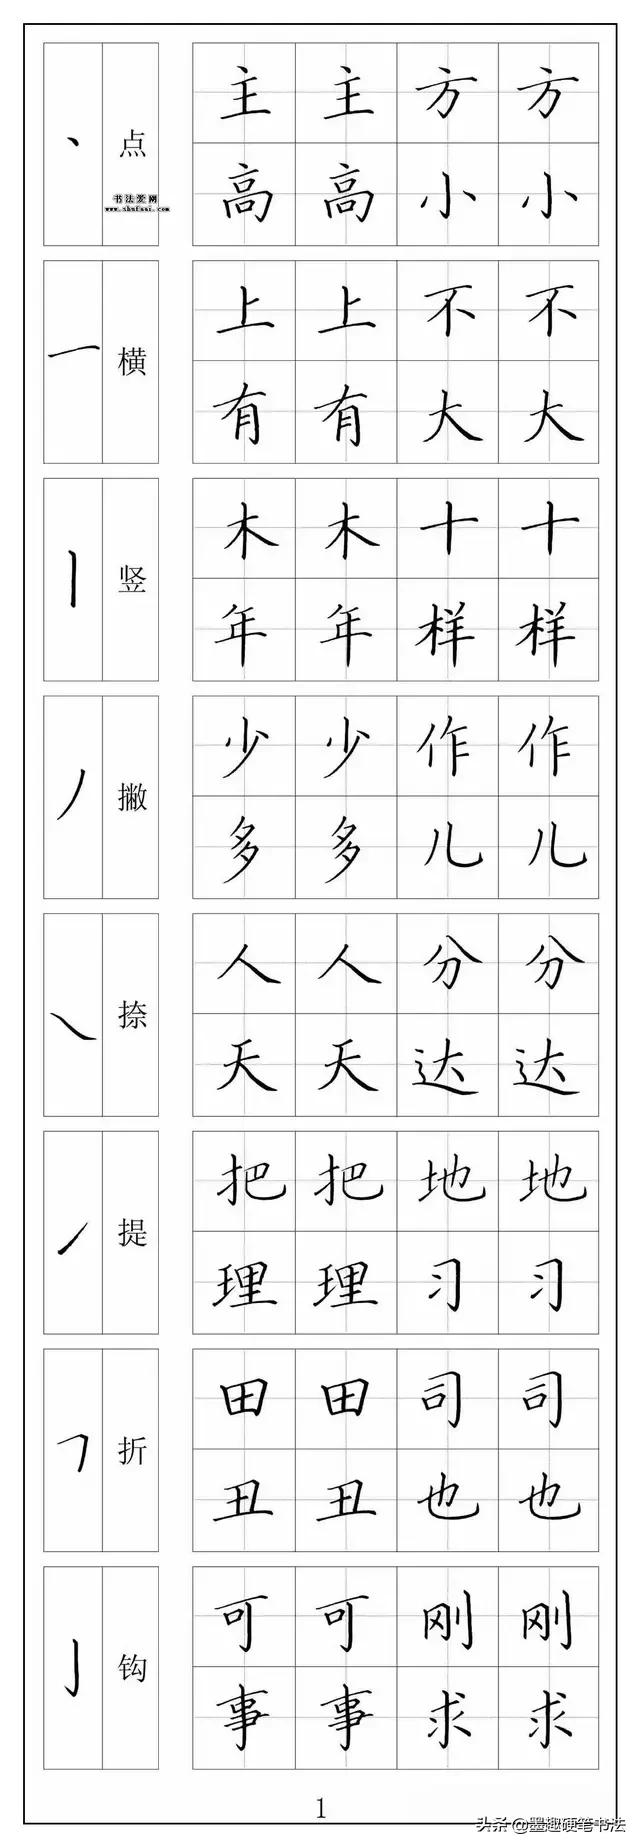 主 主 方 方
丶 点
书法爱网
www.shufaai.com
高 高 小 小
上 上 不 不
一 横
有 有 大 大
木 木 十 十
丨 竖
年 年 样 样
少 少 作 作
丿 撇
多 多 儿 儿
人 人 分 分
㇏ 捺
天 天 达 达
把 把 地 地
㇀ 提
理 理 习 习
田 田 司 司
𠃍 折
丑 丑 也 也
可 可 刚 刚
亅 钩
事 事 求 求
1
头条@墨趣硬笔书法